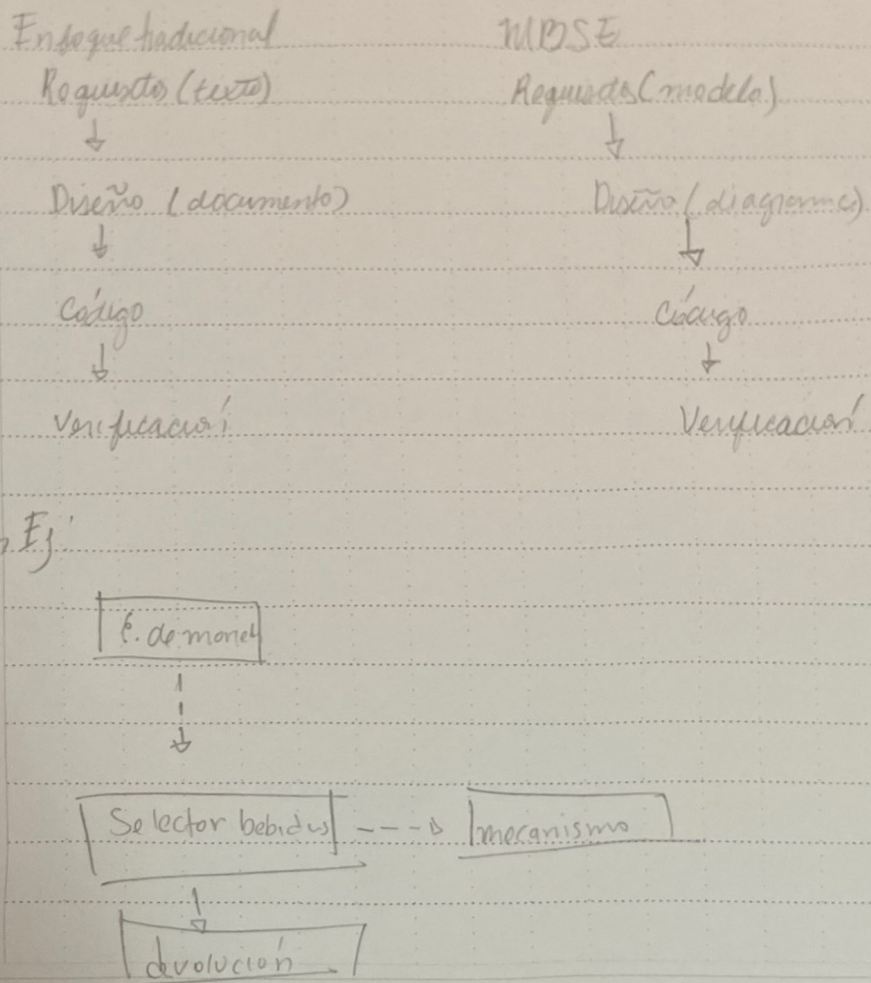 Enfoque tradicional
Requisitos (texto)
Diseño (documento)
Código
Verificación
MBSE
Requisitos (modelo)
Diseño (diagrama)
Código
Verificación
Ej:
de moned
Selector bebidas
mecanismo
devolución